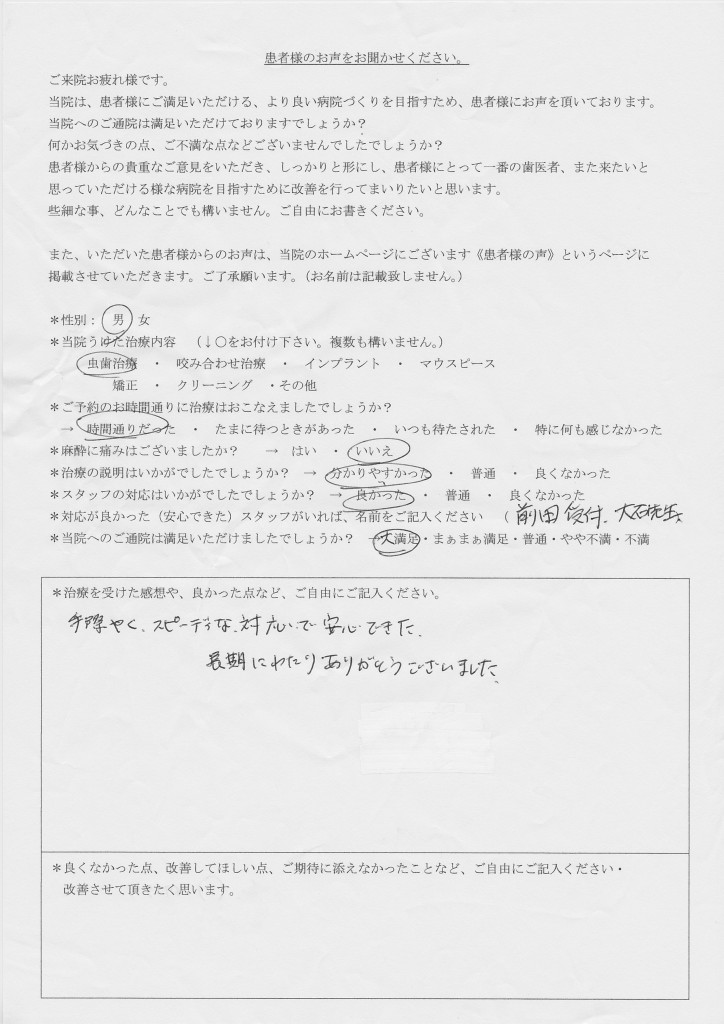 患者様のお声をお聞かせください。
ご来院お疲れ様です。
当院は、患者様にご満足いただける、より良い病院づくりを目指すため、患者様にお声を頂いております。
当院へのご通院は満足いただけておりますでしょうか？
何かお気づきの点、ご不満な点などございませんでしたでしょうか？
患者様からの貴重なご意見をいただき、しっかりと形にし、患者様にとって一番の歯医者、また来たいと
思っていただける様な病院を目指すために改善を行ってまいりたいと思います。
些細な事、どんなことでも構いません。ご自由にお書きください。
また、いただいた患者様からのお声は、当院のホームページにございます《患者様の声》というページに
掲載させていただきます。ご了承願います。（お名前は記載致しません。）
＊性別： 男 女
＊当院うけた治療内容 （↓○をお付け下さい。複数も構いません。）
虫歯治療 ・ 咬み合わせ治療 ・ インプラント ・ マウスピース
矯正 ・ クリーニング ・その他
＊ご予約のお時間通りに治療はおこなえましたでしょうか？
→ 時間通りだった ・ たまに待つときがあった ・ いつも待たされた ・ 特に何も感じなかった
＊麻酔に痛みはございましたか？ → はい ・ いいえ
＊治療の説明はいかがでしたでしょうか？ → 分かりやすかった ・ 普通 ・ 良くなかった
＊スタッフの対応はいかがでしたでしょうか？ → 良かった ・ 普通 ・ 良くなかった
＊対応が良かった（安心できた）スタッフがいれば、名前をご記入ください （ 前田受付、大石先生
＊当院へのご通院は満足いただけましたでしょうか？ →大満足・まぁまぁ満足・普通・やや不満・不満
＊治療を受けた感想や、良かった点など、ご自由にご記入ください。
手際やく、スピーディな対応で安心できた。
長期にわたりありがとうございました。
＊良くなかった点、改善してほしい点、ご期待に添えなかったことなど、ご自由にご記入ください・
改善させて頂きたく思います。